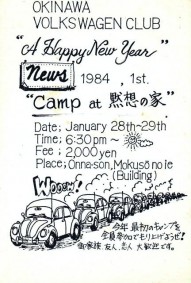 OKINAWA
VOLKSWAGEN CLUB
"A Happy New Year"
News 1984, 1st.
"Camp at 黙想の家"
Date; January 28th-29th
Time; 6:30pm~
Fee; 2,000yen
Place; Onna-son, Mokusō no Ie
(Building)
WOOOW!
今年最初のキャンプを
全員参加でもり上げようぜ!
御家族、友人、恋人 大歓迎です。